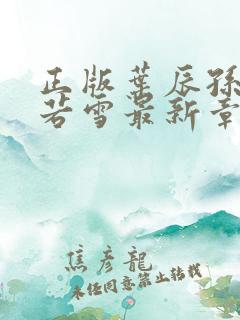 正版葉辰孫
若雪最新章
焦彦龍
未经同意禁止转载